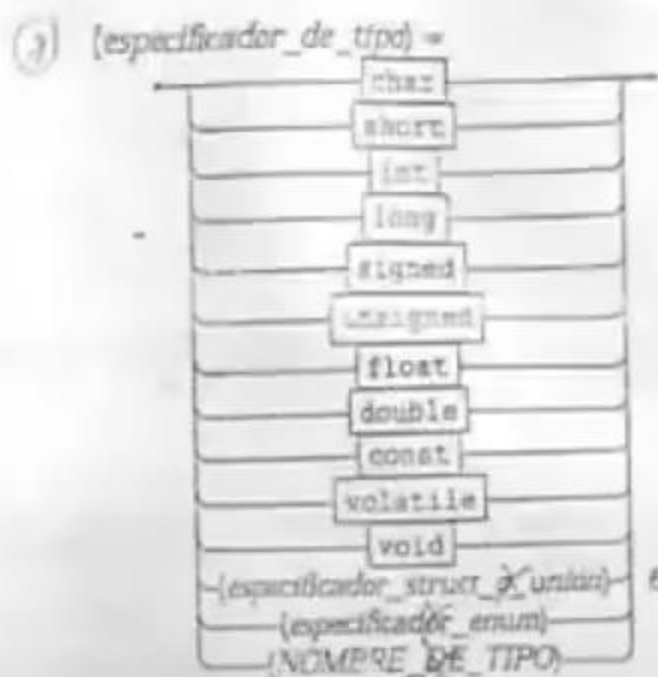 (especificador_de_tipo) =
char
short
int
long
signed
unsigned
float
double
const
volatile
void
(especificador_struct_o_union)
(especificador_enum)
(NOMBRE_DE_TIPO)